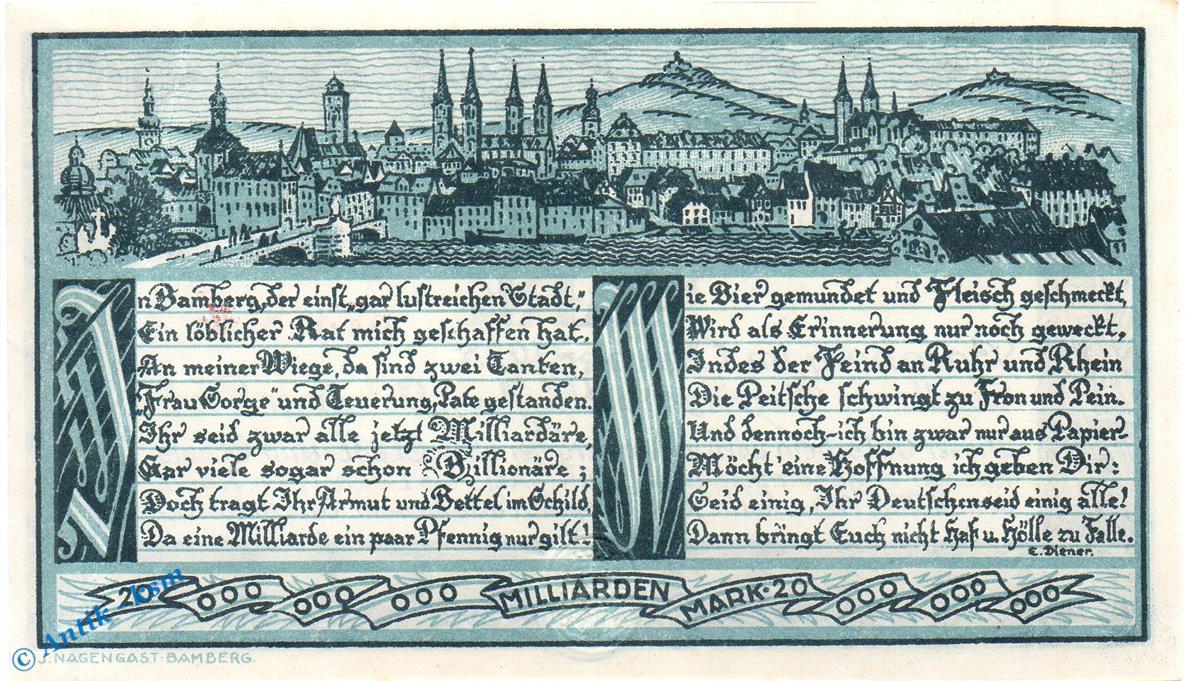 In Bamberg, der einst „gar lustreichen Stadt,"
Ein löblicher Rat mich geschaffen hat.
An meiner Wiege, da sind zwei Tanten,
„Frau Sorge" und Teuerung, Pate gestanden.
Ihr seid zwar alle jetzt Milliardäre,
Gar viele sogar schon Billionäre;
Doch tragt Ihr Armut und Bettel im Schild,
Da eine Milliarde ein paar Pfennig nur gilt!
Wie Bier gemundet und Fleisch geschmeckt,
Wird als Erinnerung nur noch geweckt,
Indes der Feind an Ruhr und Rhein
Die Peitsche schwingt zu Fron und Pein.
Und dennoch - ich bin zwar nur aus Papier -
Möcht' eine Hoffnung ich geben Dir:
Seid einig, Ihr Deutschen seid einig alle!
Dann bringt Euch nicht Haß u. Hölle zu Falle.
E. Diener.
20 000 000 000 MILLIARDEN MARK·20 000 000 000
© Antik-ksm
J. NAGENGAST-BAMBERG.